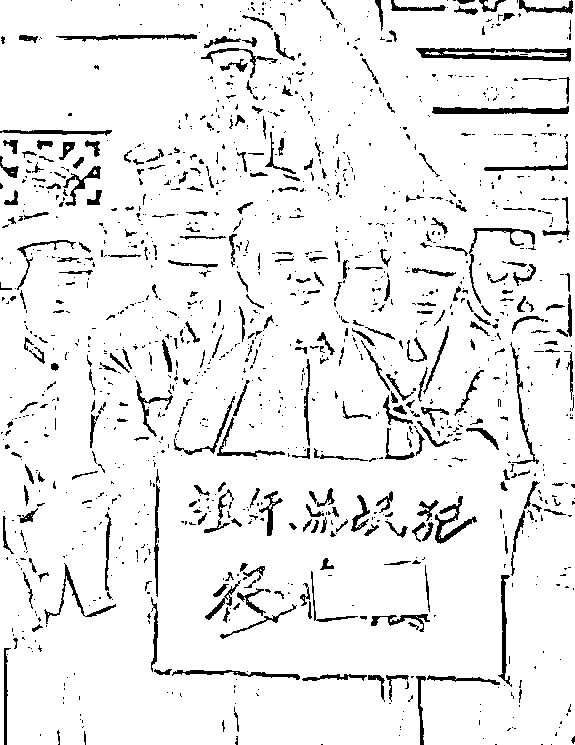 强奸、流氓犯